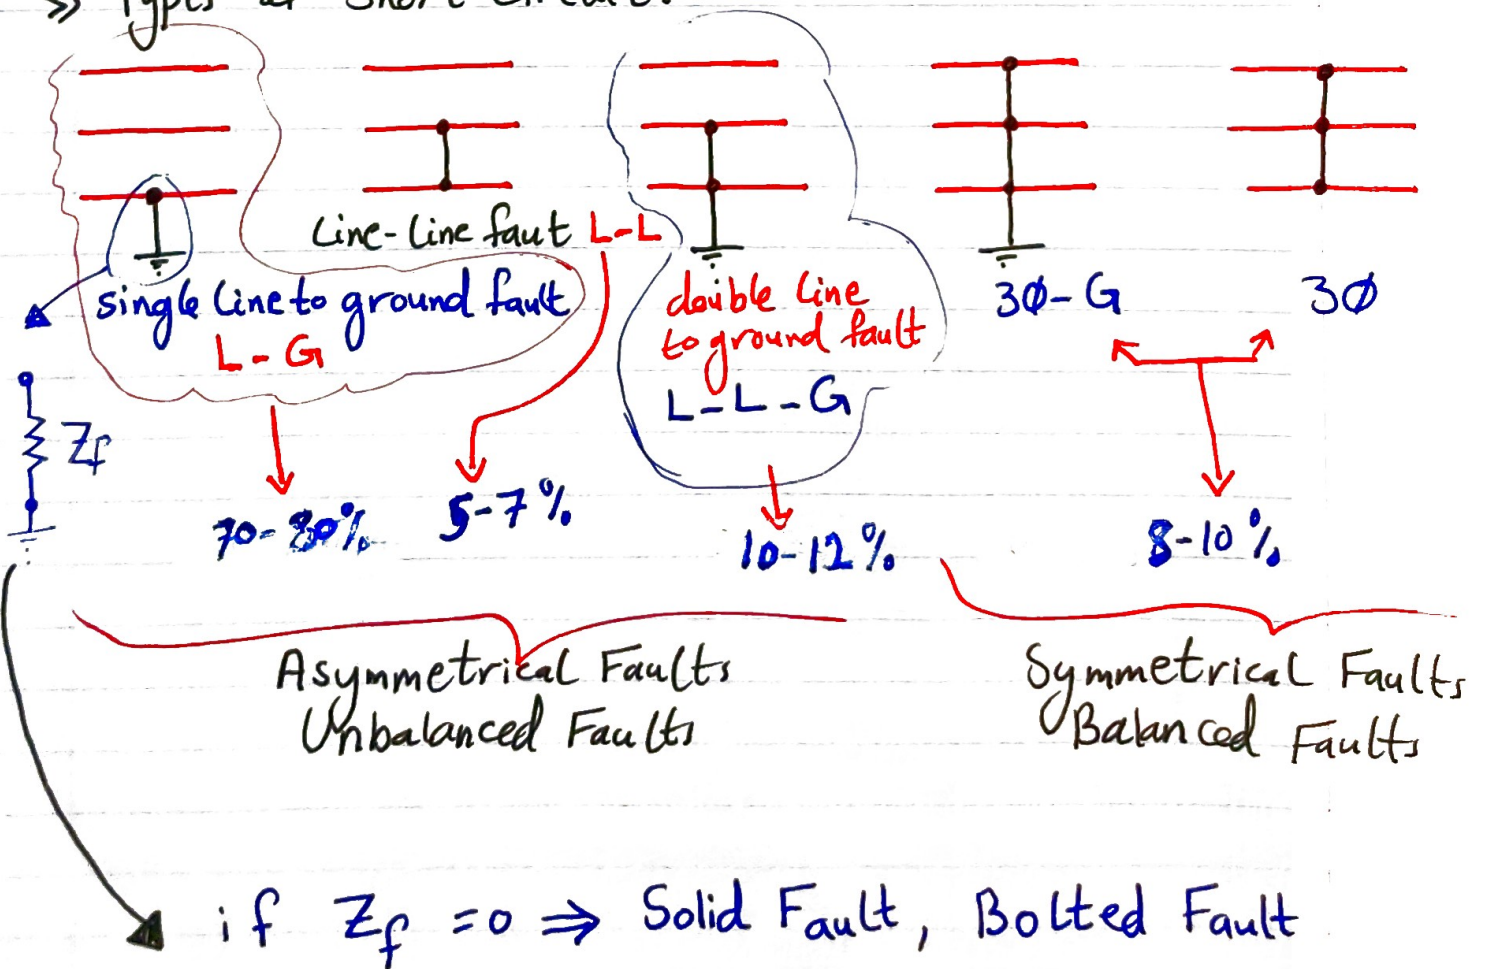 >> Types of Short Circuit:
Line-Line faut L-L
single Line to ground fault
L-G
double Line
to ground fault
L-L-G
3Ø-G
3Ø
Zf
70-80%
5-7%
10-12%
8-10%
Asymmetrical Faults
Unbalanced Faults
Symmetrical Faults
Balanced Faults
if Zf =0 ⇒ Solid Fault, Bolted Fault